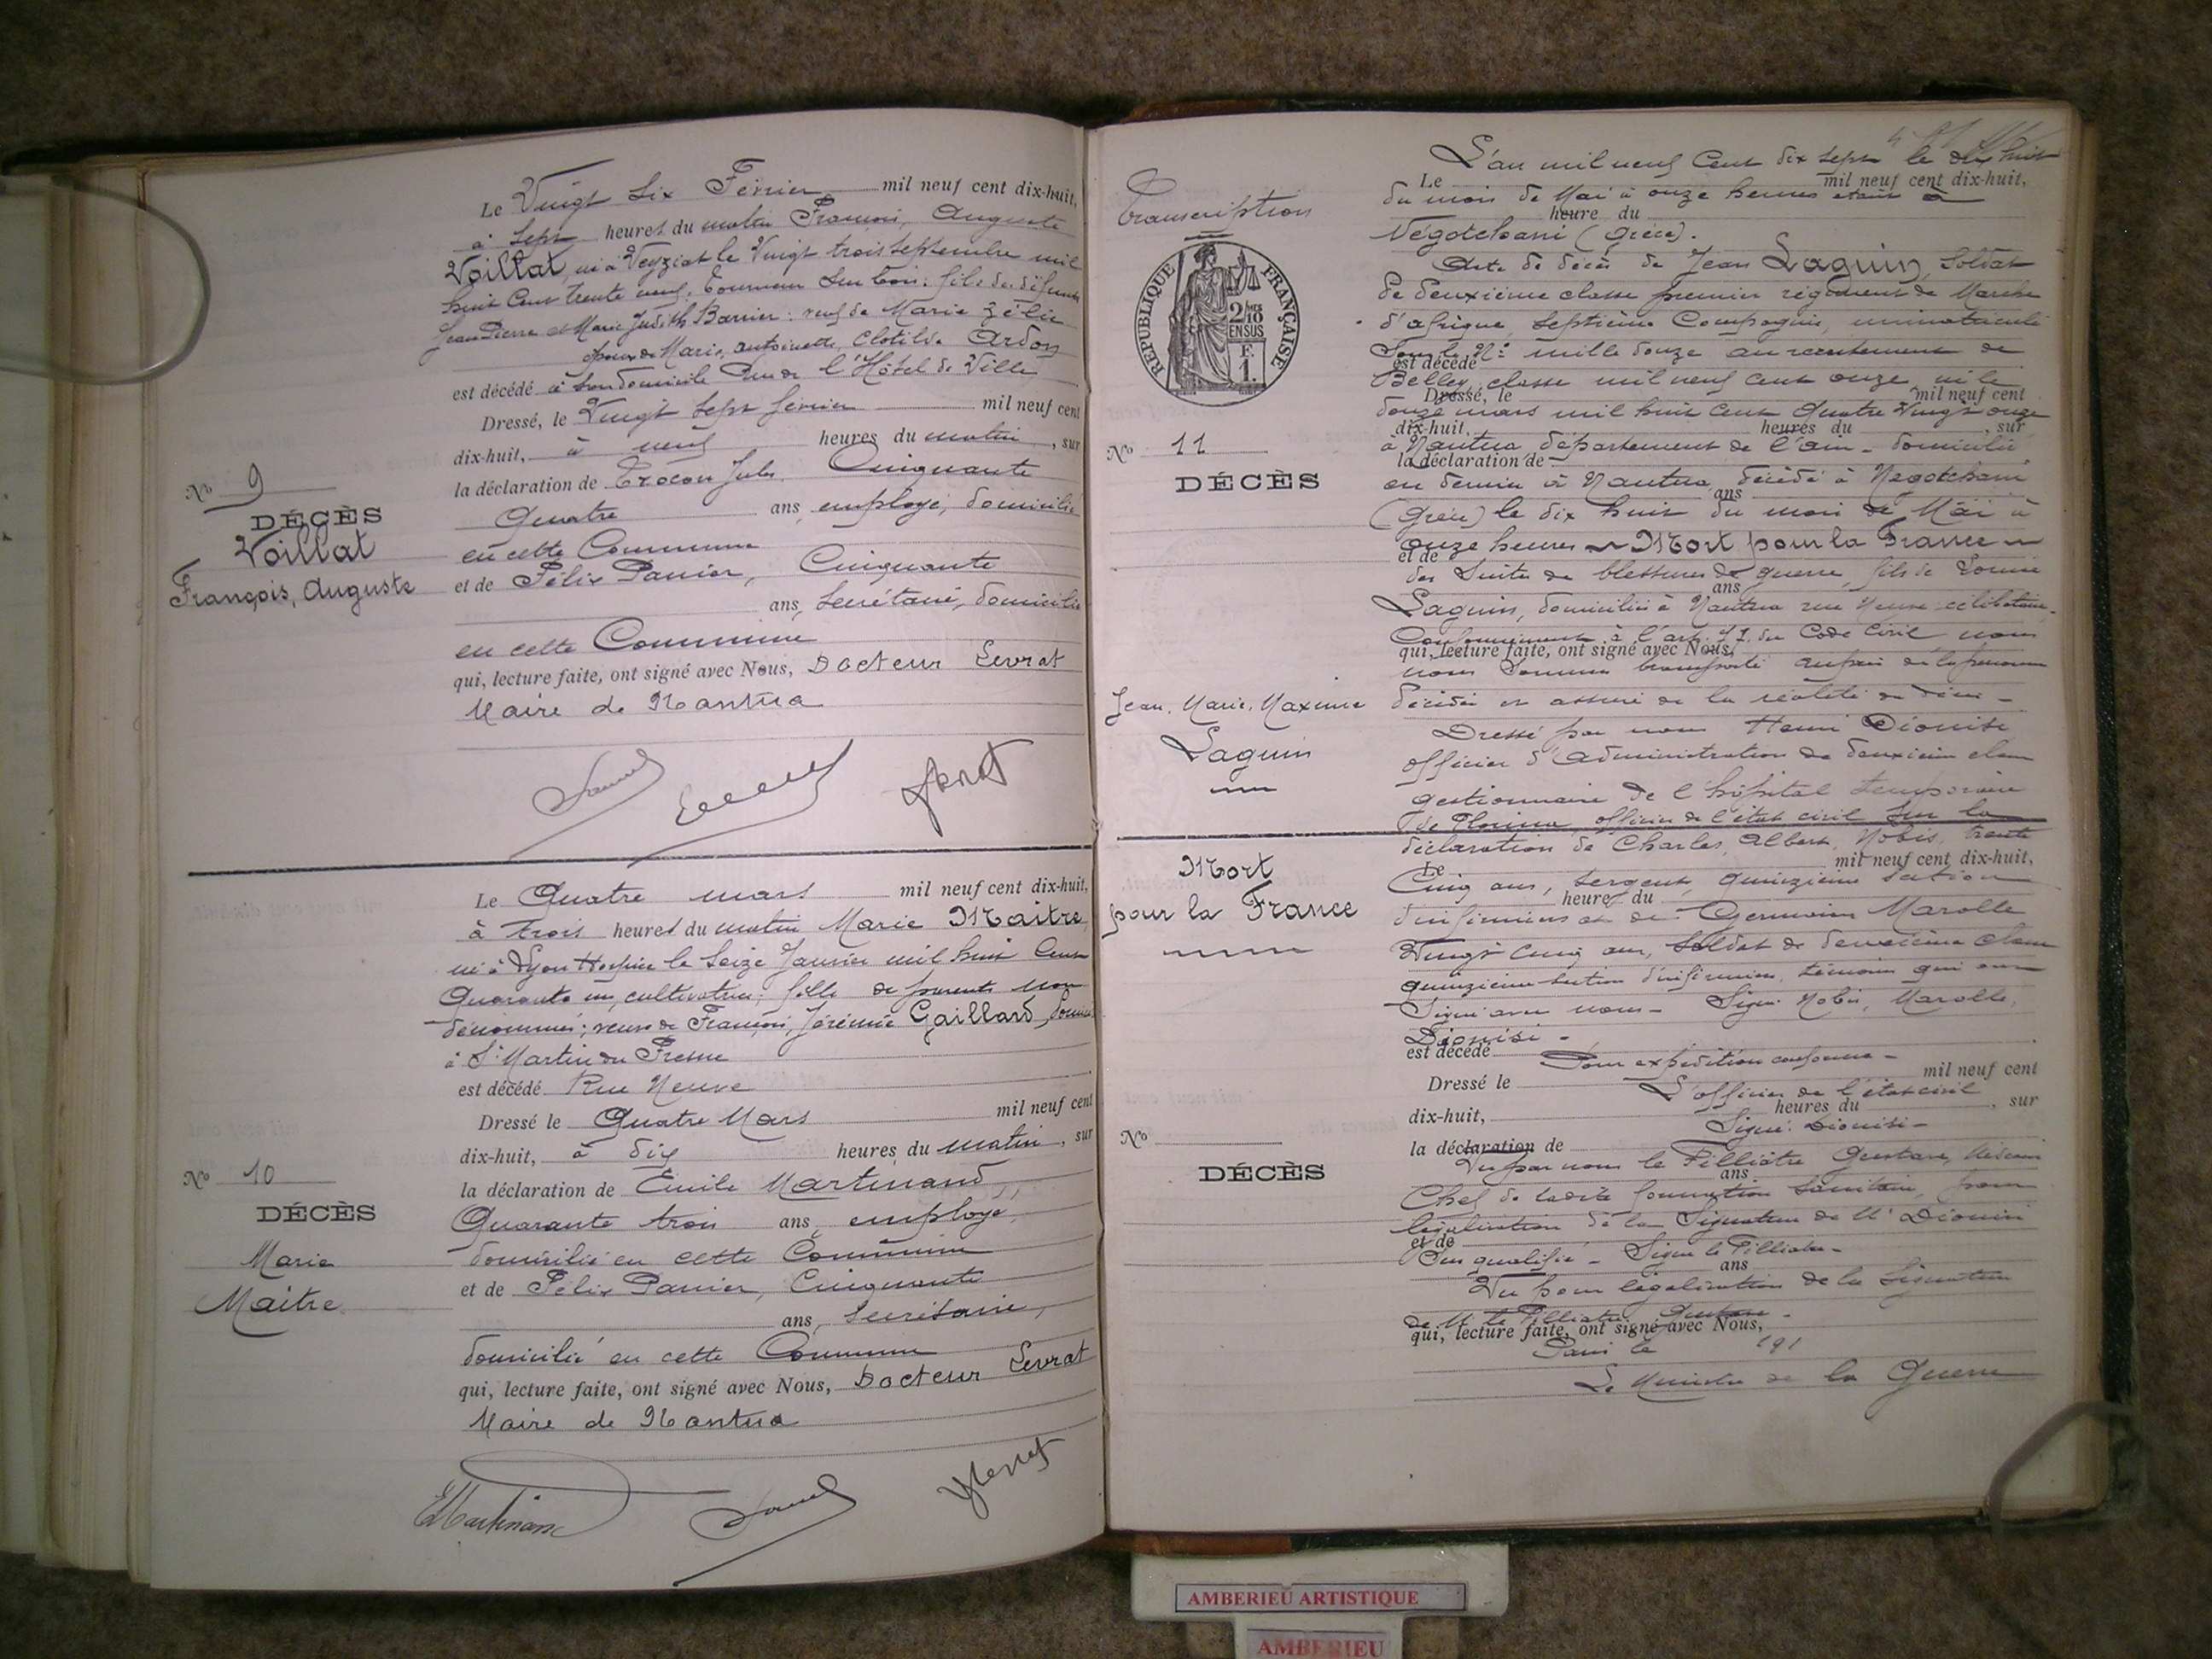 Le Vingt Six Février mil neuf cent dix-huit,
à Sept heures du matin François, Auguste
Voillat, né à Veyziat le Vingt trois septembre mil
huit Cent trente neuf, tourneur sur bois; fils des défunts
Jean Pierre et Marie Judith Barrier; veuf de Marie Zélie
époux de Marie, antoinette, Clotilde Ardon
est décédé à son domicile Rue de l'Hôtel de Ville
Dressé, le Vingt Sept février mil neuf cent
dix-huit, à neuf heures du matin, sur
la déclaration de Jules Cinquante
Quatre ans, employé, domicilié
en cette Commune
et de Félix Panier, Cinquante
ans, Secrétaire, domicilié
en cette Commune
qui, lecture faite, ont signé avec Nous, Docteur Levrat
Maire de Nantua
No 9
DÉCÈS
Voillat
François, Auguste
Le Quatre mars mil neuf cent dix-huit,
à trois heures du matin Marie Maitre,
né à Lyon Hospice le Seize Janvier mil huit Cent
Quarante un, cultivatrice; fille de parents non
dénommés; veuve de François, Jérémie Gaillard,
à St Martin du Fresne
est décédé Rue Neuve
Dressé le Quatre Mars mil neuf cent
dix-huit, à dix heures du matin, sur
la déclaration de Emile Martinand,
Quarante trois ans, employé,
domicilié en cette Commune
et de Félix Panier, Cinquante
ans, Secrétaire,
domicilié en cette Commune
qui, lecture faite, ont signé avec Nous, Docteur Levrat
Maire de Nantua
No 10
DÉCÈS
Marie
Maitre
EMartinand
Transcription
REPUBLIQUE FRANÇAISE
2/10 EN SUS
F. 1.
No 11
DÉCÈS
Jean, Marie, Maxime
Laguin
Mort
pour la France
No
DÉCÈS
L'an mil neuf Cent dix sept le dix huit
Le mil neuf cent dix-huit,
du mois de Mai à onze heures étant à
heure du
Négotchani (Grèce).
Acte de décès de Jean Laguin, Soldat
de deuxième classe premier régiment de Marche
d'afrique, Septième Compagnie, immatriculé
Sous le No mille douze au recrutement de
est décédé
Belley, classe mil neuf cent onze, né le
Dressé, le mil neuf cent
douze mars mil huit Cent Quatre Vingt onze
dix-huit, heures du , sur
à Nantua département de l'ain - domicilié
la déclaration de
en dernier à Nantua, décédé à Negotchani
ans
(Grèce) le dix huit du mois de Mai à
onze heures ~ Mort pour la France ~
et de
des Suites de blessures de guerre, fils de Louise
ans
Laguin, domiciliée à Nantua rue Neuve, célibataire.
Conformément à l'art. 77 du Code Civil nous
qui, lecture faite, ont signé avec Nous,
nous Sommes transporté auprès de la personne
décédée et assuré de la réalité du décès -
Dressé par nous Henri Dionisi
officier d'Administration de deuxième classe
gestionnaire de l'hôpital temporaire
de Florina, officier de l'état civil Sur la
déclaration de Charles, Albert, Nobis, trente
Le mil neuf cent dix-huit,
Cinq ans, Sergent, quinzième Section
heure du
d'infirmiers et de Germain Marolle
Vingt Cinq ans, Soldat de deuxième classe
quinzième Section d'infirmiers, témoins qui ont
Signé avec nous - Signé Nobis, Marolle,
Dionisi -
est décédé
Pour expédition conforme -
Dressé le mil neuf cent
L'officier de l'état civil
dix-huit, heures du , sur
Signé: Dionisi -
la déclaration de
Vu par nous le Filliâtre Gustave, Médecin
ans
Chef de ladite formation Sanitaire, pour
légalisation de la Signature de Mr Dionisi
et de
Signé le Filliâtre -
ans
Vu pour légalisation de la Signature
de M. le Filliâtre Gustave -
qui, lecture faite, ont signé avec Nous,
Paris le 191
Le Ministre de la Guerre
AMBERIEU ARTISTIQUE
AMBERIEU